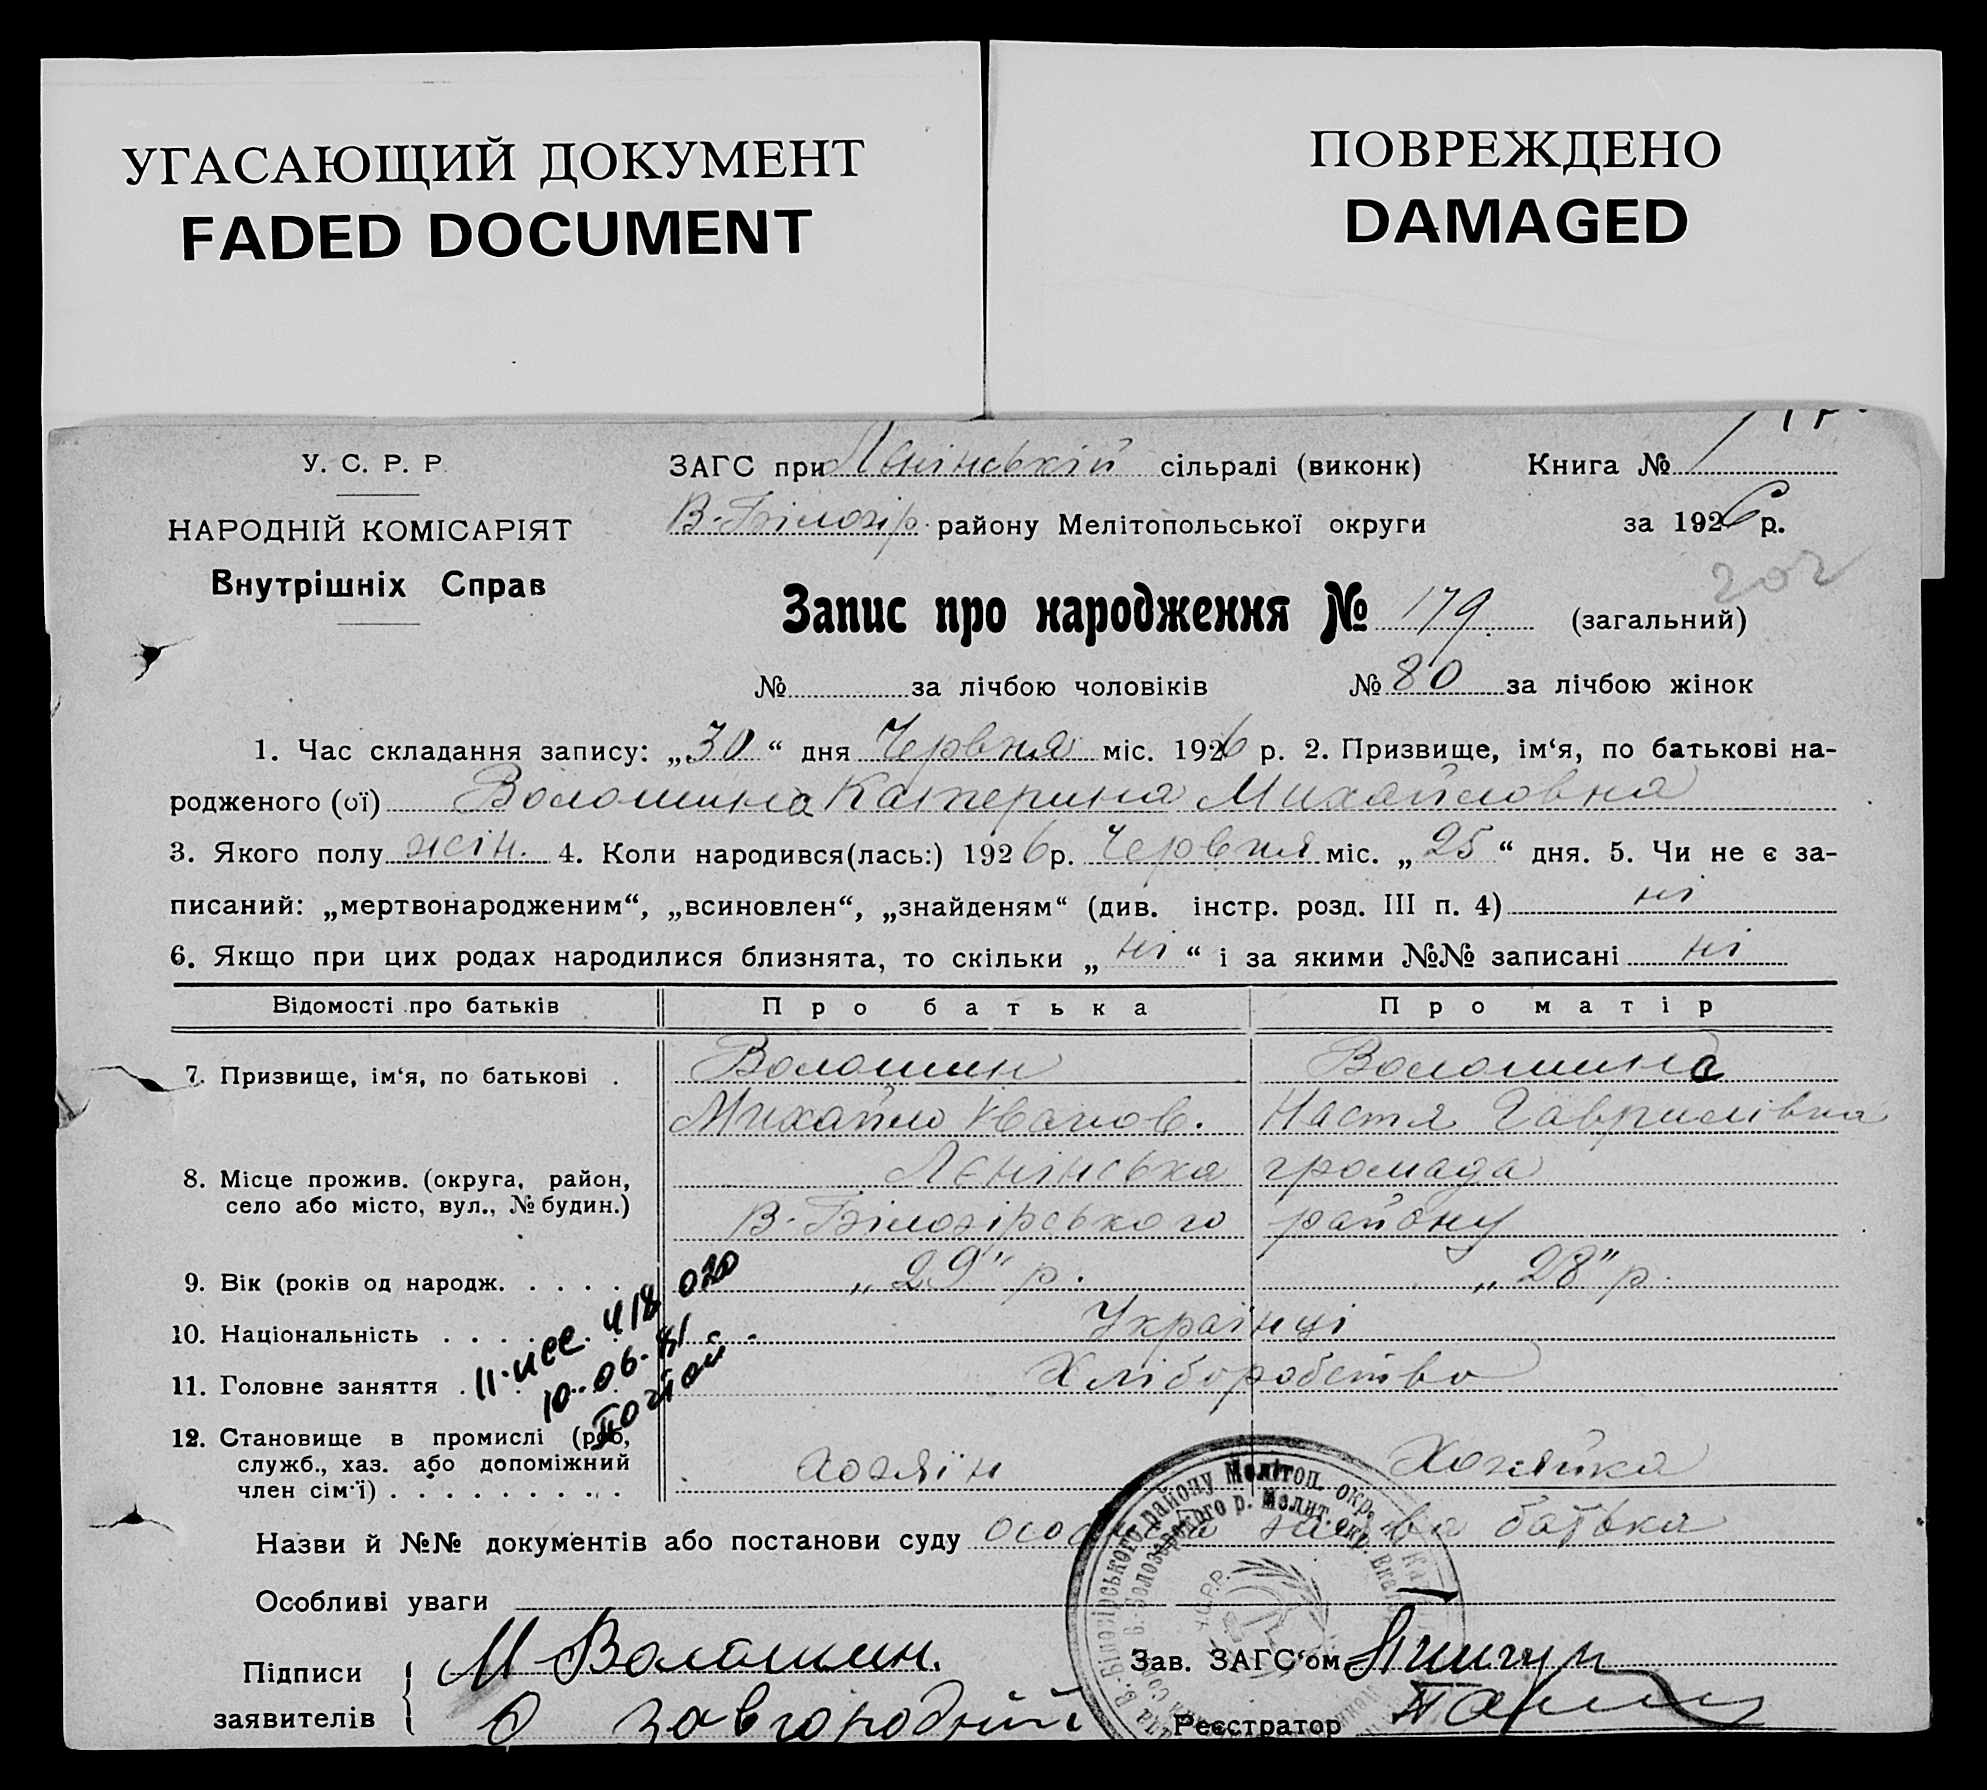 УГАСАЮЩИЙ ДОКУМЕНТ
FADED DOCUMENT
ПОВРЕЖДЕНО
DAMAGED
У. С. Р. Р.
НАРОДНІЙ КОМІСАРІЯТ
Внутрішніх Справ
ЗАГС при Ленінській сільраді (виконк)
В-Білозір. району Мелітопольської округи
Книга № 1
за 1926 р.
202
Запис про народження № 179. (загальний)
№ за лічбою чоловіків № 80 за лічбою жінок
1. Час складання запису: „30“ дня Червня міс. 1926 р. 2. Призвище, ім‘я, по батькові на-
родженого (ої) Волошина Катерина Михайловна
3. Якого полу жін. 4. Коли народився(лась:) 1926 р. Червня міс. „25“ дня. 5. Чи не є за-
писаний: „мертвонародженим“, „всиновлен“, „знайденям“ (див. інстр. розд. III п. 4) ні
6. Якщо при цих родах народилися близнята, то скільки „ні“ і за якими №№ записані ні
Відомості про батьків Про батька Про матір
7. Призвище, ім‘я, по батькові . Волошин Волошина
Михайло Іванов. Настя Гаврилівна
8. Місце прожив. (округа, район, Ленінська громада
село або місто, вул., № будин.) В-Білозірського району
9. Вік (років од народж. . . . . „29“ р. „28“ р.
10. Національність . . . . Українці
11. Головне заняття . Хліборобство
11-ИЕЕ. 418 020
10-06-81
12. Становище в промислі (роб,
служб., хаз. або допоміжний
член сім‘ї) . . . . . . . . . хозяїн Хозяйка
Назви й №№ документів або постанови суду особиста заява батька
Особливі уваги
Підписи
заявителів
М Волошин.
О Завгородній
Зав. ЗАГС‘ом
Реєстратор
району Мелітоп. окр.
У.С.Р.Р.